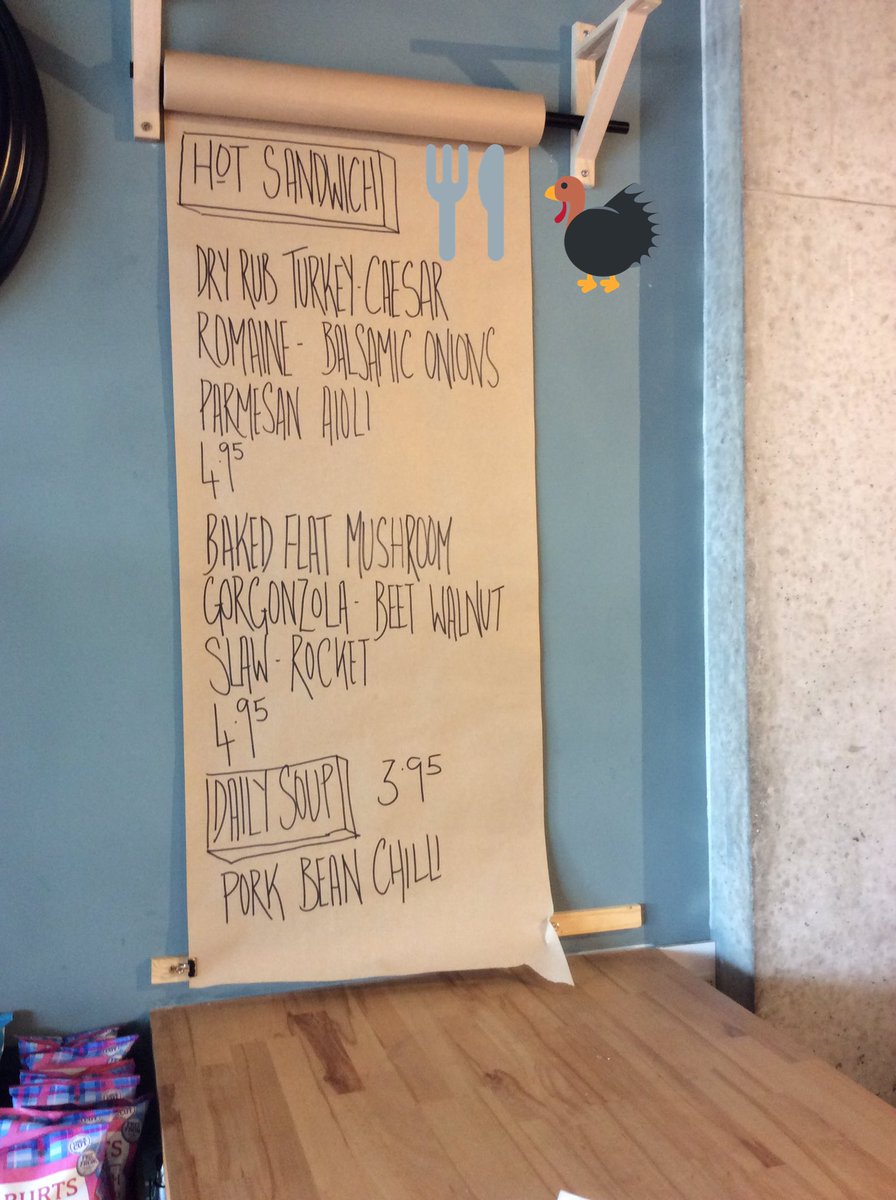 HOT SANDWICH
DRY RUB TURKEY-CAESAR
ROMAINE - BALSAMIC ONIONS
PARMESAN AIOLI
4.95
BAKED FLAT MUSHROOM
GORGONZOLA - BEET WALNUT
SLAW - ROCKET
4.95
DAILY SOUP 3.95
PORK BEAN CHILLI
BURTS